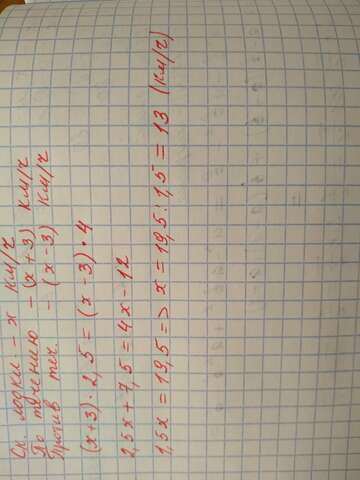 Ск. лодки - x км/ч
По течению - (x+3) км/ч
Против теч. - (x-3) км/ч
(x+3)·2,5=(x-3)·4
2,5x+7,5=4x-12
1,5x=19,5=> x=19,5:1,5=13 (км/ч)